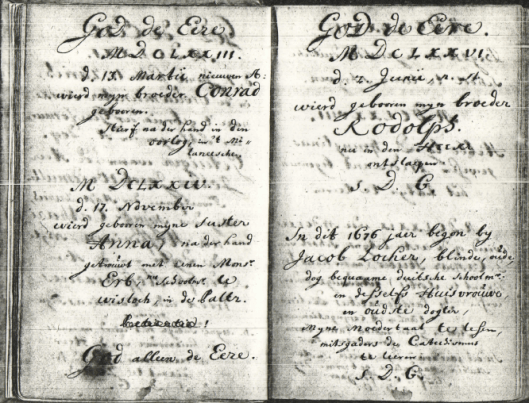 God de Eere
M DC LXXIII.
d. 13. Martii nieuwen st:
wierd myn broeder Conrad
gebooren.
Sturf na der hand in den
oorlog, in 't Mi-
laneeschen
M DCLXXIV.
d. 17. November
wierd gebooren myne suster
Anna, na der hand
getrouwt met eenen Mons.r
Erb, te
Wisloch, in de Paltz.
God alleen de Eere.
God de Eere.
M DC LXXVI.
d. 2. Junii, n. st
wierd gebooren myn broeder
Rodolph.
nu in den Heere
ontslapen.
S. D. G.
In dit 1676 jaer begon by
Jacob Locher, blinde, oude
dog bequaame duitsche Schoolm:
en desselfs Huisvrouwe
en oudste dogter,
Myne Moedertaal te lesen,
mitsgaders den Catechismus
te leeren
S. D. G.